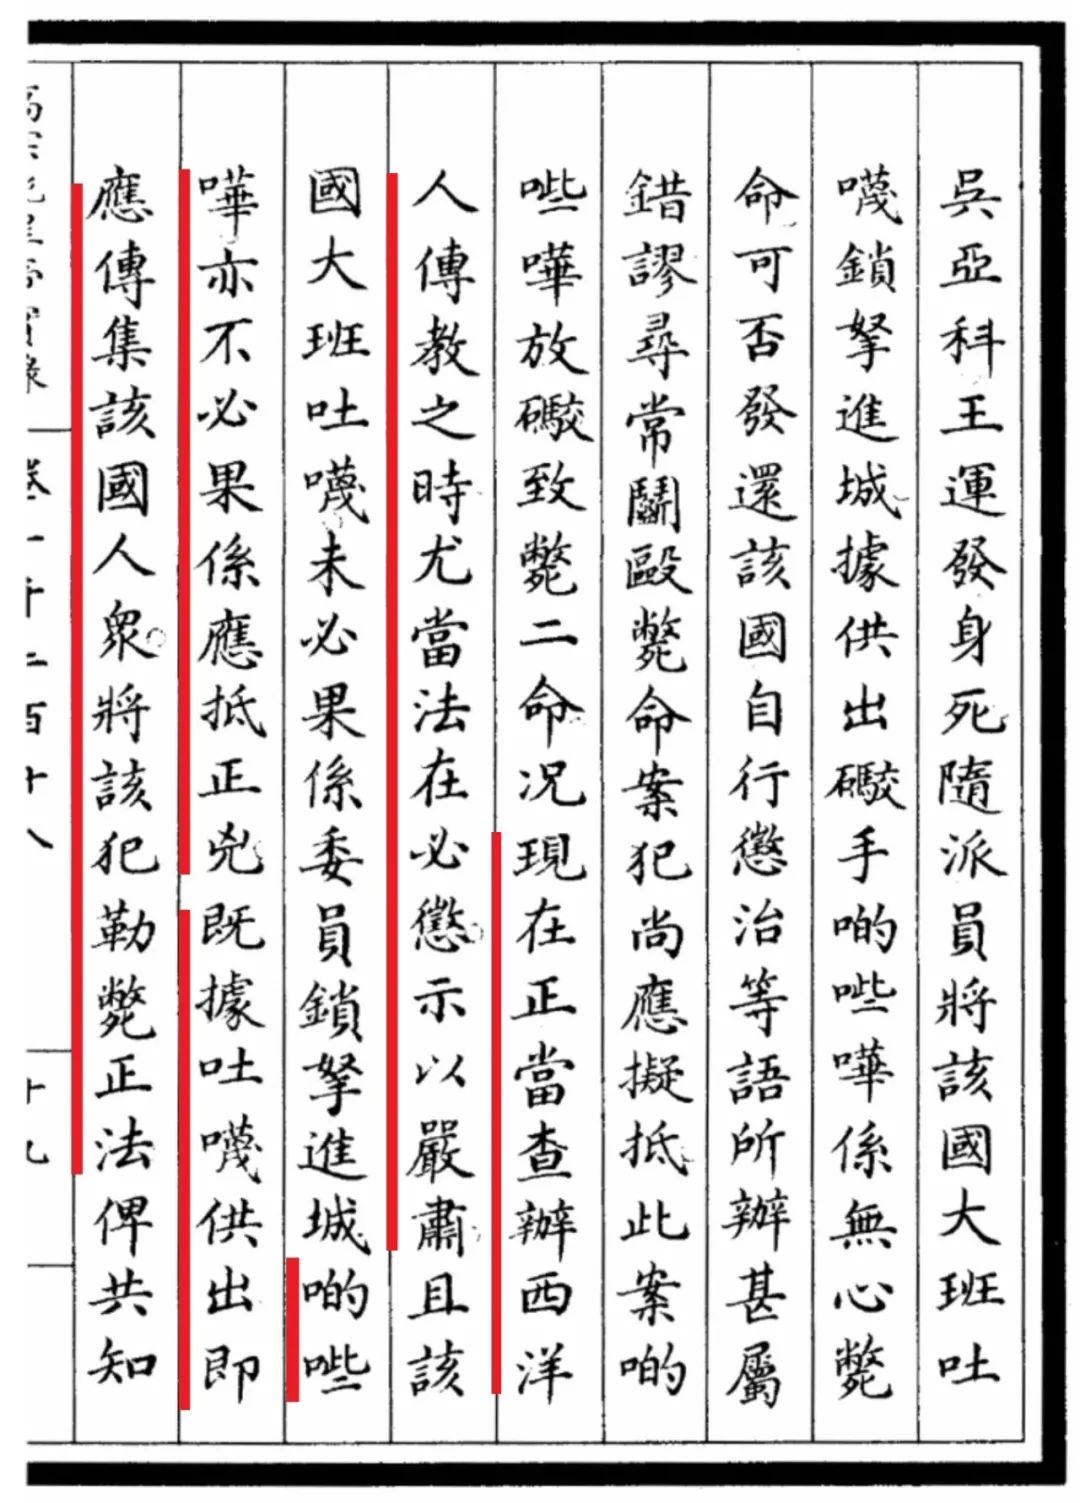 吳亞科王運發身死隨派員將該國大班吐
㗼鎖拏進城據供出礮手啲㗑嘩係無心斃
命可否發還該國自行懲治等語所辦甚屬
錯謬尋常鬭毆斃命案犯尚應擬抵此案啲
㗑嘩放礮致斃二命况現在正當查辦西洋
人傳教之時尤當法在必懲示以嚴肅且該
國大班吐㗼未必果係委員鎖拏進城啲㗑
嘩亦不必果係應抵正兇既據吐㗼供出即
應傳集該國人衆將該犯勒斃正法俾共知
卷一千二百十八
十九